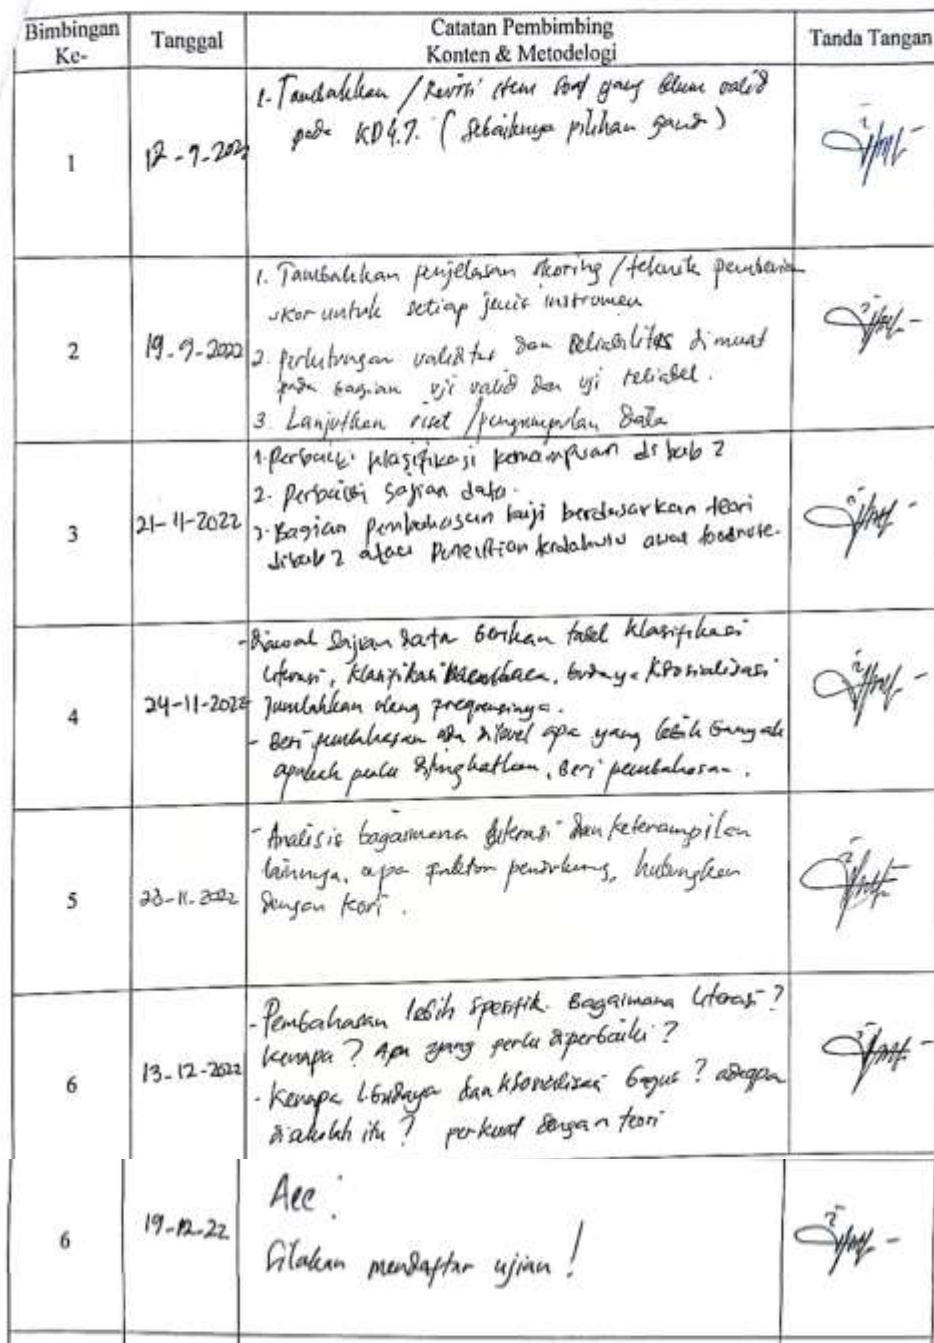 Bimbingan Ke-
Tanggal
Catatan Pembimbing
Konten & Metodelogi
Tanda Tangan
1
12-9-202
1. Tambahkan / Revisi item soal yang belum valid
pada KD 4.7. (Sebaiknya pilihan ganda)
2
19-9-2022
1. Tambahkan penjelasan skoring / teknik pemberian
skor untuk setiap jenis instrumen
2. Perhitungan validitas dan Reliabilitas dimuat
pada bagian uji valid dan uji reliabel.
3. Lanjutkan riset / pengumpulan data
3
21-11-2022
1. Perbaiki klasifikasi kemampuan di bab 2
2. Perbaiki sajian data.
3. Bagian pembahasan kaji berdasarkan teori
di bab 2 atau penelitian terdahulu footnote.
4
24-11-2022
- Diawal Sajian data berikan tabel klasifikasi
literasi, klasifikasi membaca, budaya & sosialisasi
Jumlahkan frequensinya.
- Beri pembahasan ada dilevel apa yang lebih banyak
apakah perlu ditingkatkan, beri pembahasan.
5
28-11-2022
- Analisis bagaimana literasi dan keterampilan
lainnya, apa faktor pendukung, hubungkan
dengan teori.
6
13-12-2022
- Pembahasan lebih spesifik. Bagaimana literasi?
Kenapa? Apa yang perlu diperbaiki?
- Kenapa dan bagus? ada apa
disekolah itu? perkuat dengan teori
6
19-12-22
Acc.
Silakan mendaftar ujian!